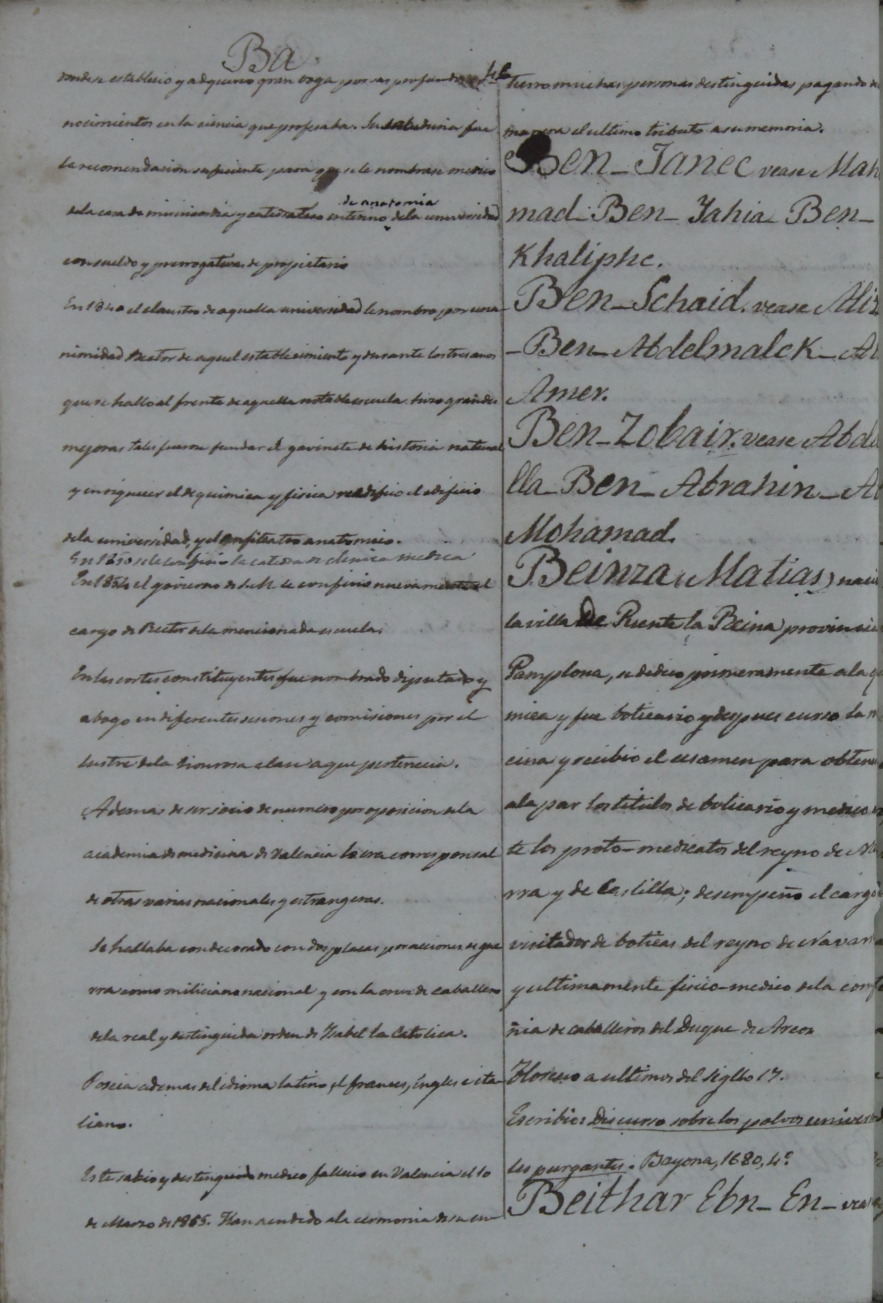 Ba
donde se establecio y adquirio gran voga por sus profundos co-
nocimientos en la ciencia que profesaba. Su sabiduria fue
la recomendacion suficiente para que se le nombrase medico
de la casa de misericordia y catedratico interino de anatomia de la universidad
con sueldo y prerrogativas de propietario
En 1840 el claustro de aquella universidad le nombro por una-
nimidad Rector de aquel establecimiento y durante los tres años
que se hallo al frente de aquella notable escuela hizo grandes
mejoras tales fueron fundar el gavinete de historia natural
y enriquecer el de quimica y fisica reedifico el edificio
de la universidad, y el anfiteatro anatomico.
En se le confirio la catedra de clinica medica
En el govierno de S.M. le confirio nuevamente el
cargo de Rector de la mencionada escuela.
En las cortes constituyentes fue nombrado diputado y
abogo en diferentes sesiones y comisiones por el
lustre de la honrosa clase a que pertenecia.
Ademas de ser socio de numero por oposicion de la
academia de medicina de Valencia lo era corresponsal
de otras varias nacionales y estrangeras.
Se hallaba condecorado con dos placas por acciones de gue
rra como miliciano nacional y con la cruz de caballero
de la real y distinguida orden de Isabel la Catolica.
Poseia ademas del idioma latino, el frances, ingles e ita-
liano.
Este sabio y distinguido medico fallecio en Valencia el 10
de Marzo de 1865. Han acudido a la cermonia de su en-
tierro muchas personas destinguidas pagando de
manera el ultimo tributo a su memoria.
Ben-Janec vease Mah
mad Ben-Jahia Ben-
Khaliphe.
Ben-Schaid. vease Aliz
-Ben-Abdelmalek-Al
Amer.
Ben-Zobair, vease Abda
lla Ben-Abrahin-Al
Mohamad.
Beinza (Matias) nacio
la villa de Puente la Reina provincia
Pamplona, se dedico primeramente a la qu
mica y fue boticario y despues curso la m
cina y recibio el ecsamen para obtener
a la par los titulos de boticario y medico
te los proto-medicatos del reyno de Na
rra y de Castilla; desempeño el cargo
visitador de boticas del reyno de Navarra
y ultimamente fisico-medico de la comp
ñia de caballeros del Duque de Arcos
Florecio a ultimos del siglo 17.
Escribio: Discurso sobre los polvos univers
les purgantes. Bayona, 1680, 4º
Beithar Ebn-En- vea